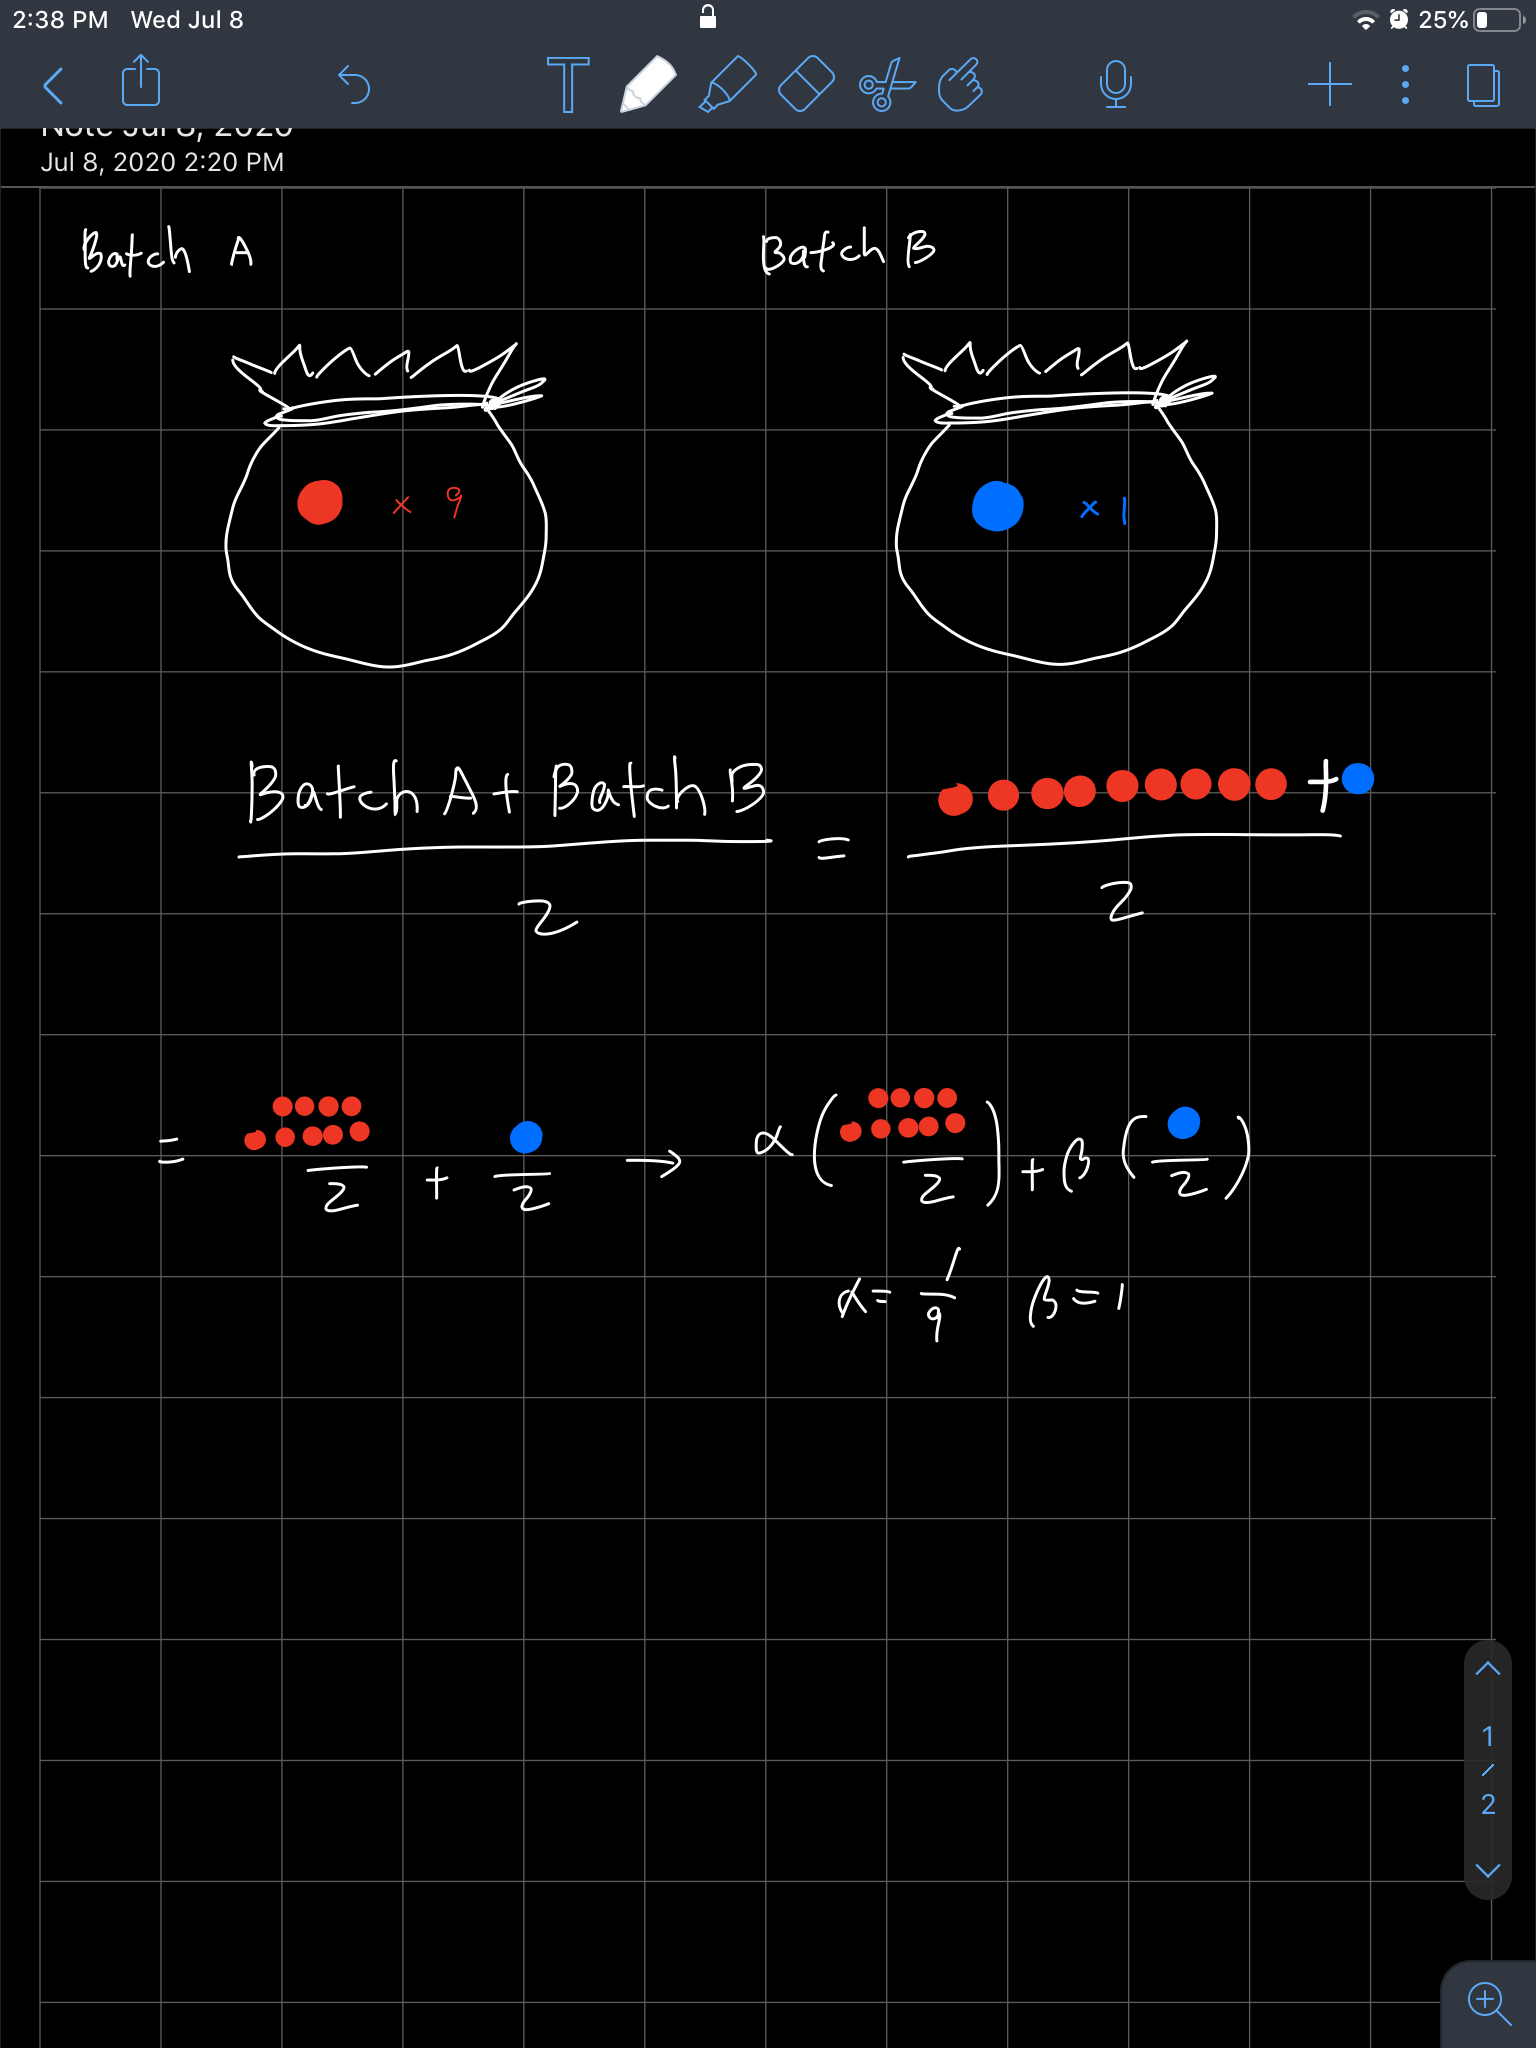 2:38 PM Wed Jul 8 25%
Note Jul 8, 2020
Jul 8, 2020 2:20 PM
Batch A Batch B
× 9 × 1
Batch A + Batch B
+
=
2 2
= 2 + 2 → α ( 2 ) + β ( 2 )
α = 1/9 β = 1
1
/
2